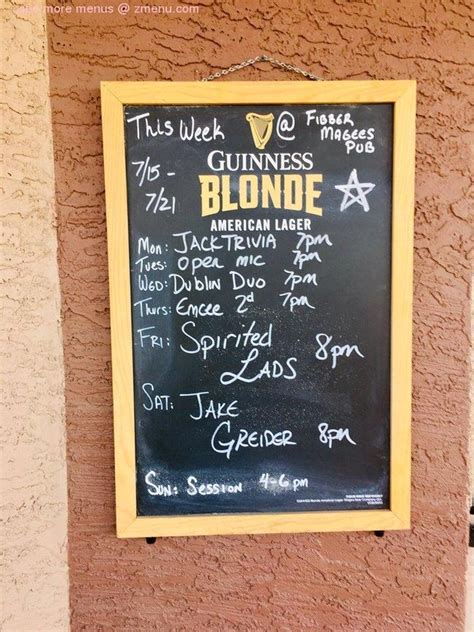 more menus @ zmenu.com
This Week @ FIBBER
MAGEES
PUB
7/15 -
7/21
GUINNESS
BLONDE
AMERICAN LAGER
Mon: JACK TRIVIA 7pm
Tues: open mic 7pm
WED: DUBLIN DUO 7pm
Thurs: EmCEE 2d 7pm
FRI: Spirited
LADS 8pm
SAT: JAKE
GREIDER 8pm
SUN: SESSION 4-6 pm